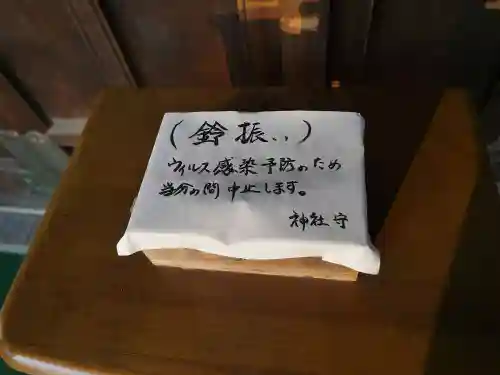 (鈴振い)
ウィルス感染予防のため
当分の間中止します。
神社守